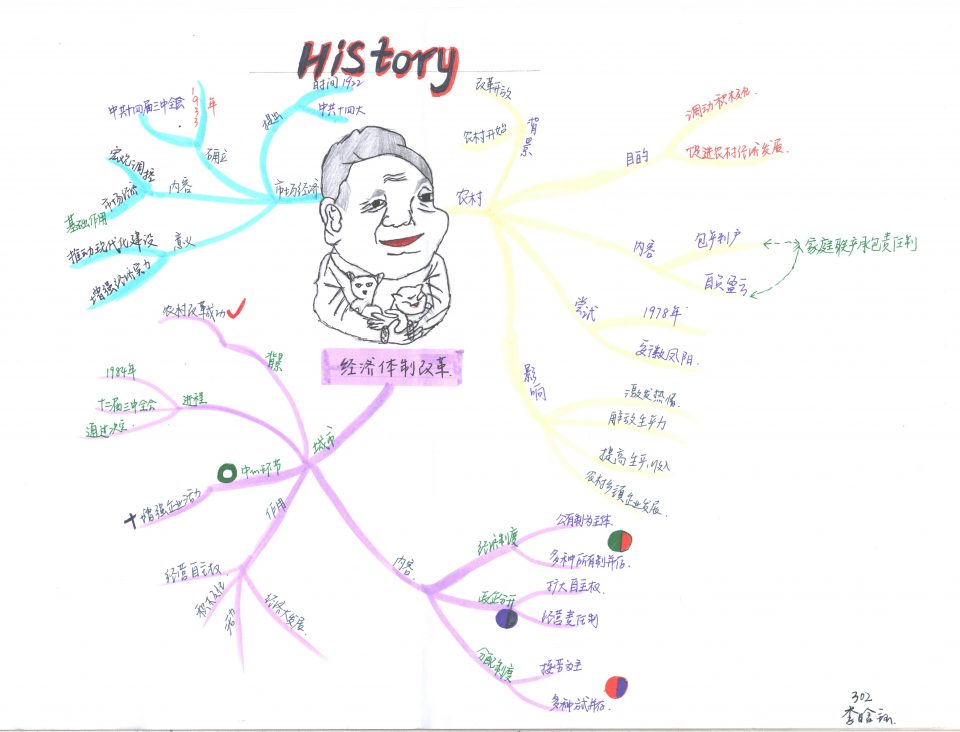 History
经济体制改革
市场经济
提出
时间1922
中共十四大
确立
中共十四届三中全会
1933年
内容
宏观调控
市场经济
基础作用
意义
推动现代化建设
增强经济实力
农村
背景
改革开放
农村开始
目的
调动积极性
促进农村经济发展
内容
包产到户
自负盈亏
家庭联产承包责任制
尝试
1978年
安徽凤阳
影响
激发热情
解放生产力
提高生产、收入
农村乡镇企业发展
城市
背景
农村改革成功
进程
1984年
十二届三中全会
通过决定
中心环节
增强企业活力
作用
经营自主权
积极性
活力
经济大发展
内容
经济制度
公有制为主体
多种所有制并存
政企分开
扩大自主权
经营责任制
分配制度
按劳为主
多种方式并存
302